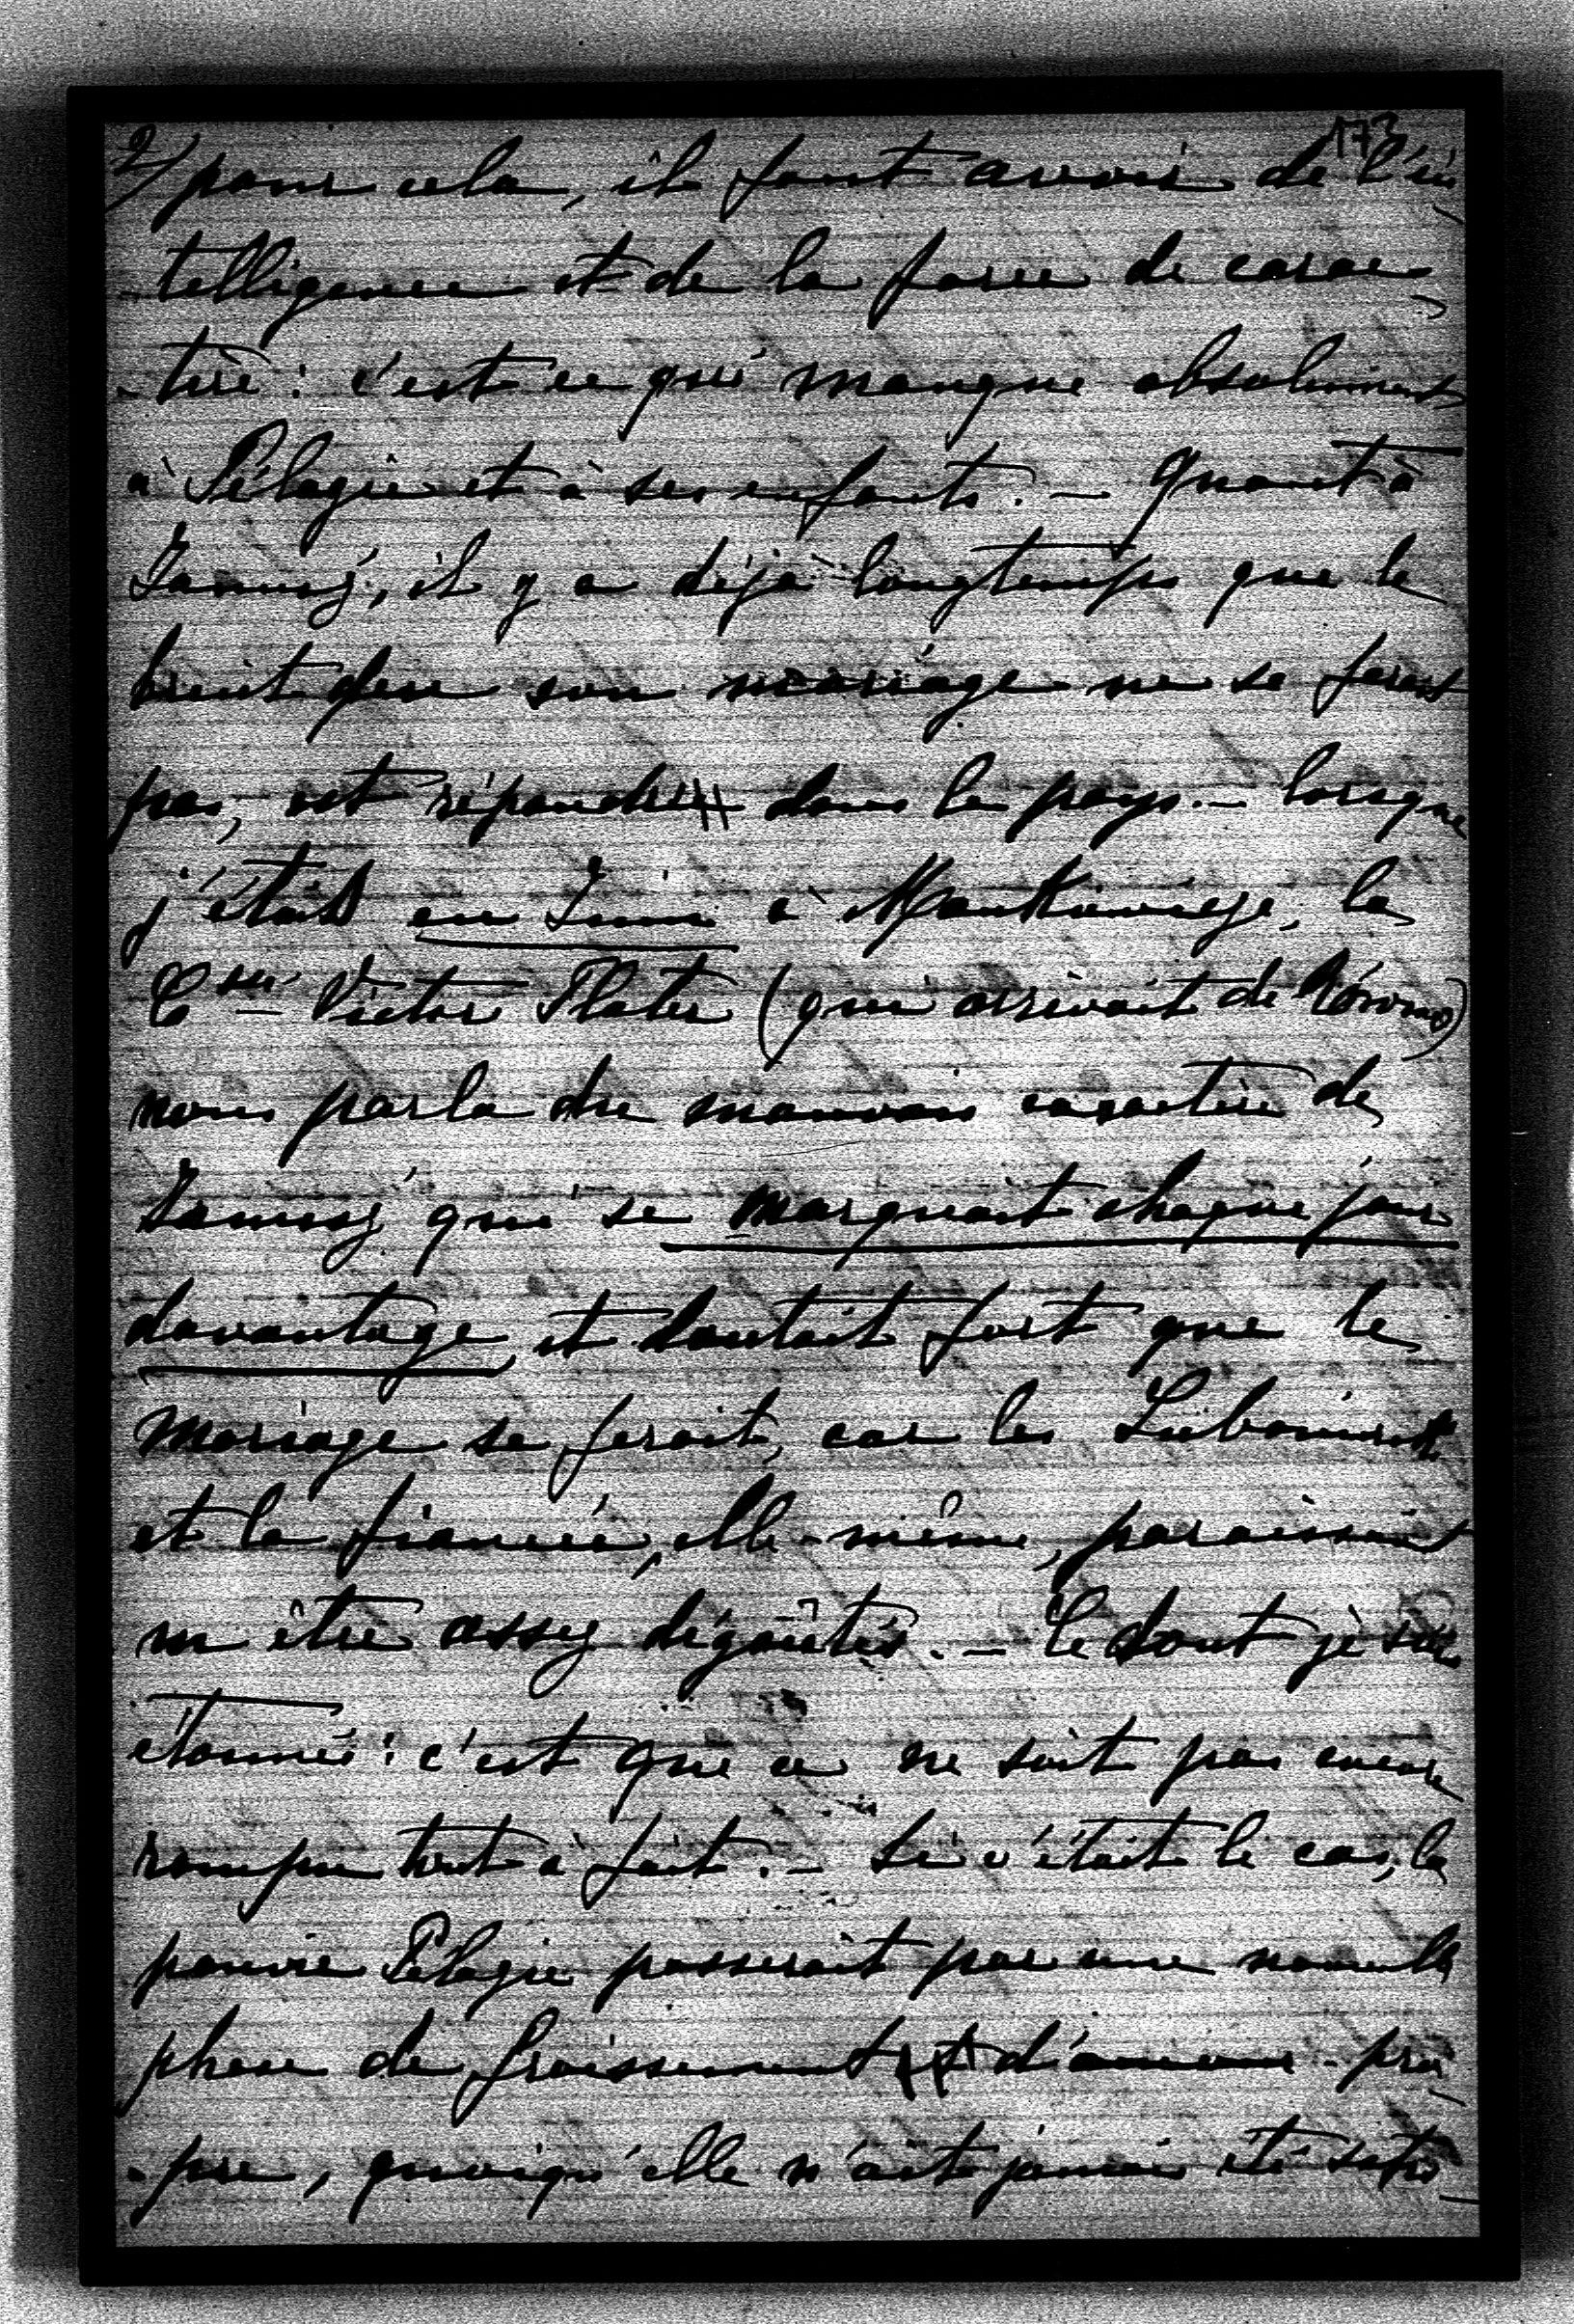 2/ pour cela, il faut avoir de l'in- 173
telligence et de la force de carac-
tère : c'est ce qui manque absolument
à Pélagie et à ses enfants. — Quant à
Janusz, il y a déjà longtemps que le
bruit que son mariage ne se ferait
pas, est répandu dans le pays. — Lorsque
j'étais en Juin à, la
Csse Victor Plater (qui arrivait de Równo)
nous parla du mauvais caractère de
Janusz qui se marquait chaque jour
davantage, et doutait fort que le
mariage se ferait, car les Lubomirski
et la fiancée, elle-même, paraissaient
en être assez dégoûtés. — Ce dont je suis
étonnée : c'est que ce ne soit pas encore
rompu tout à fait. — Si c'était le cas, la
pauvre Pélagie passerait par une nouvelle
phase de froissement d'amour-pro-
pre, quoiqu'elle n'ait jamais été satis-